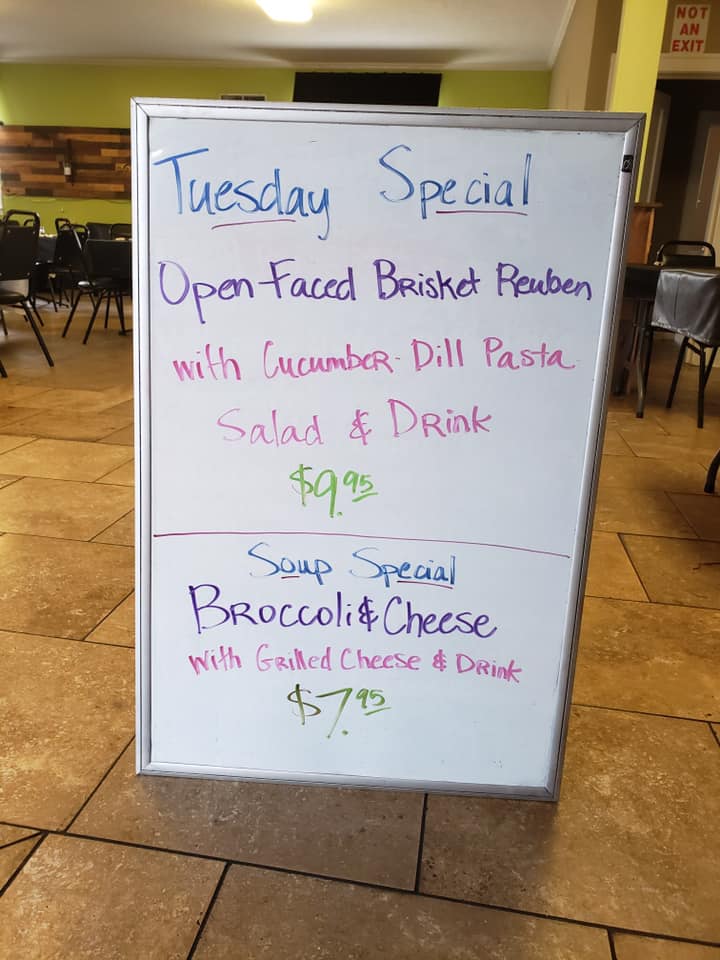 NOT
AN
EXIT
Tuesday Special
Open-Faced Brisket Reuben
with Cucumber-Dill Pasta
Salad & Drink
$9.95
Soup Special
Broccoli & Cheese
with Grilled Cheese & Drink
$7.95